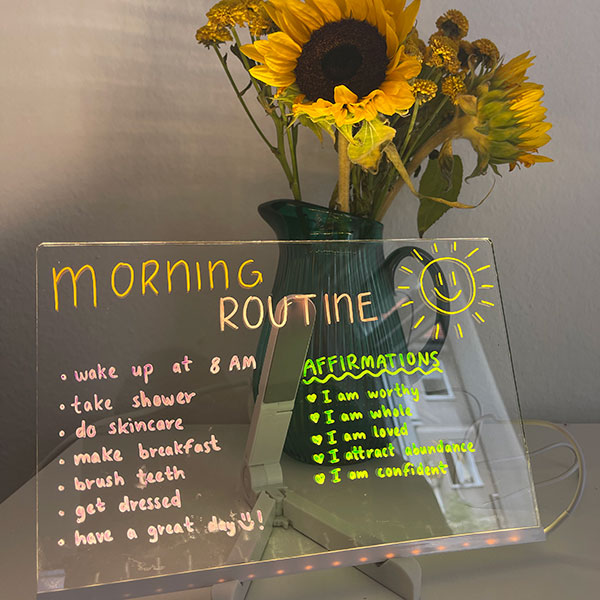 MORNING
ROUTINE
• wake up at 8 AM
• take shower
• do skincare
• make breakfast
• brush teeth
• get dressed
• have a great day!
AFFIRMATIONS
♥ I am worthy
♥ I am whole
♥ I am loved
♥ I attract abundance
♥ I am confident